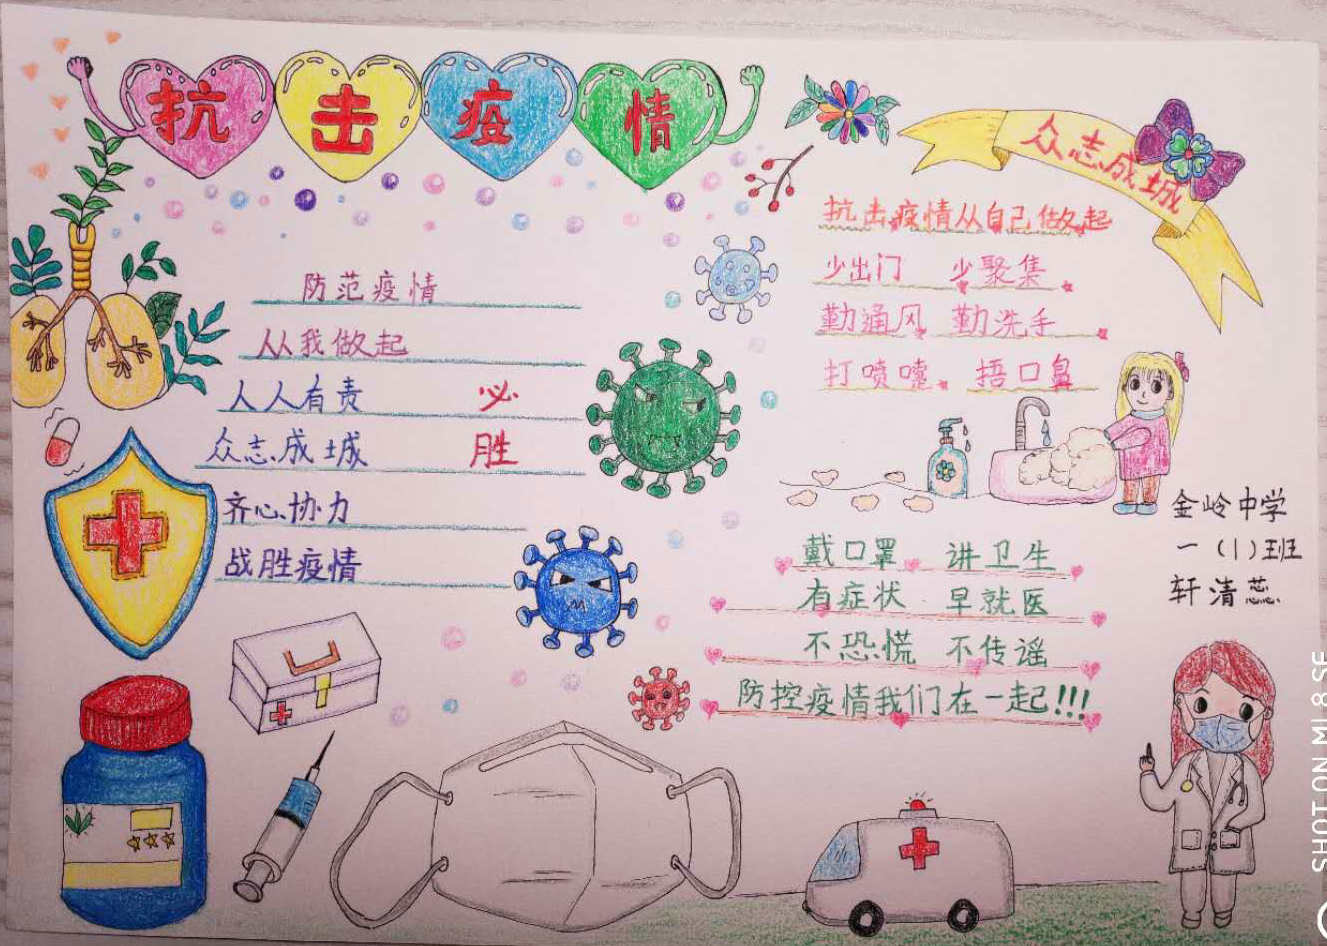 抗击疫情
众志成城
防范疫情
从我做起
人人有责 必
众志成城 胜
齐心协力
战胜疫情
抗击疫情从自己做起
少出门 少聚集
勤通风 勤洗手
打喷嚏 捂口鼻
戴口罩 讲卫生
有症状 早就医
不恐慌 不传谣
防控疫情我们在一起!!!
金岭中学
一(1)班
轩清蕊
SHOT ON MI 8 SE